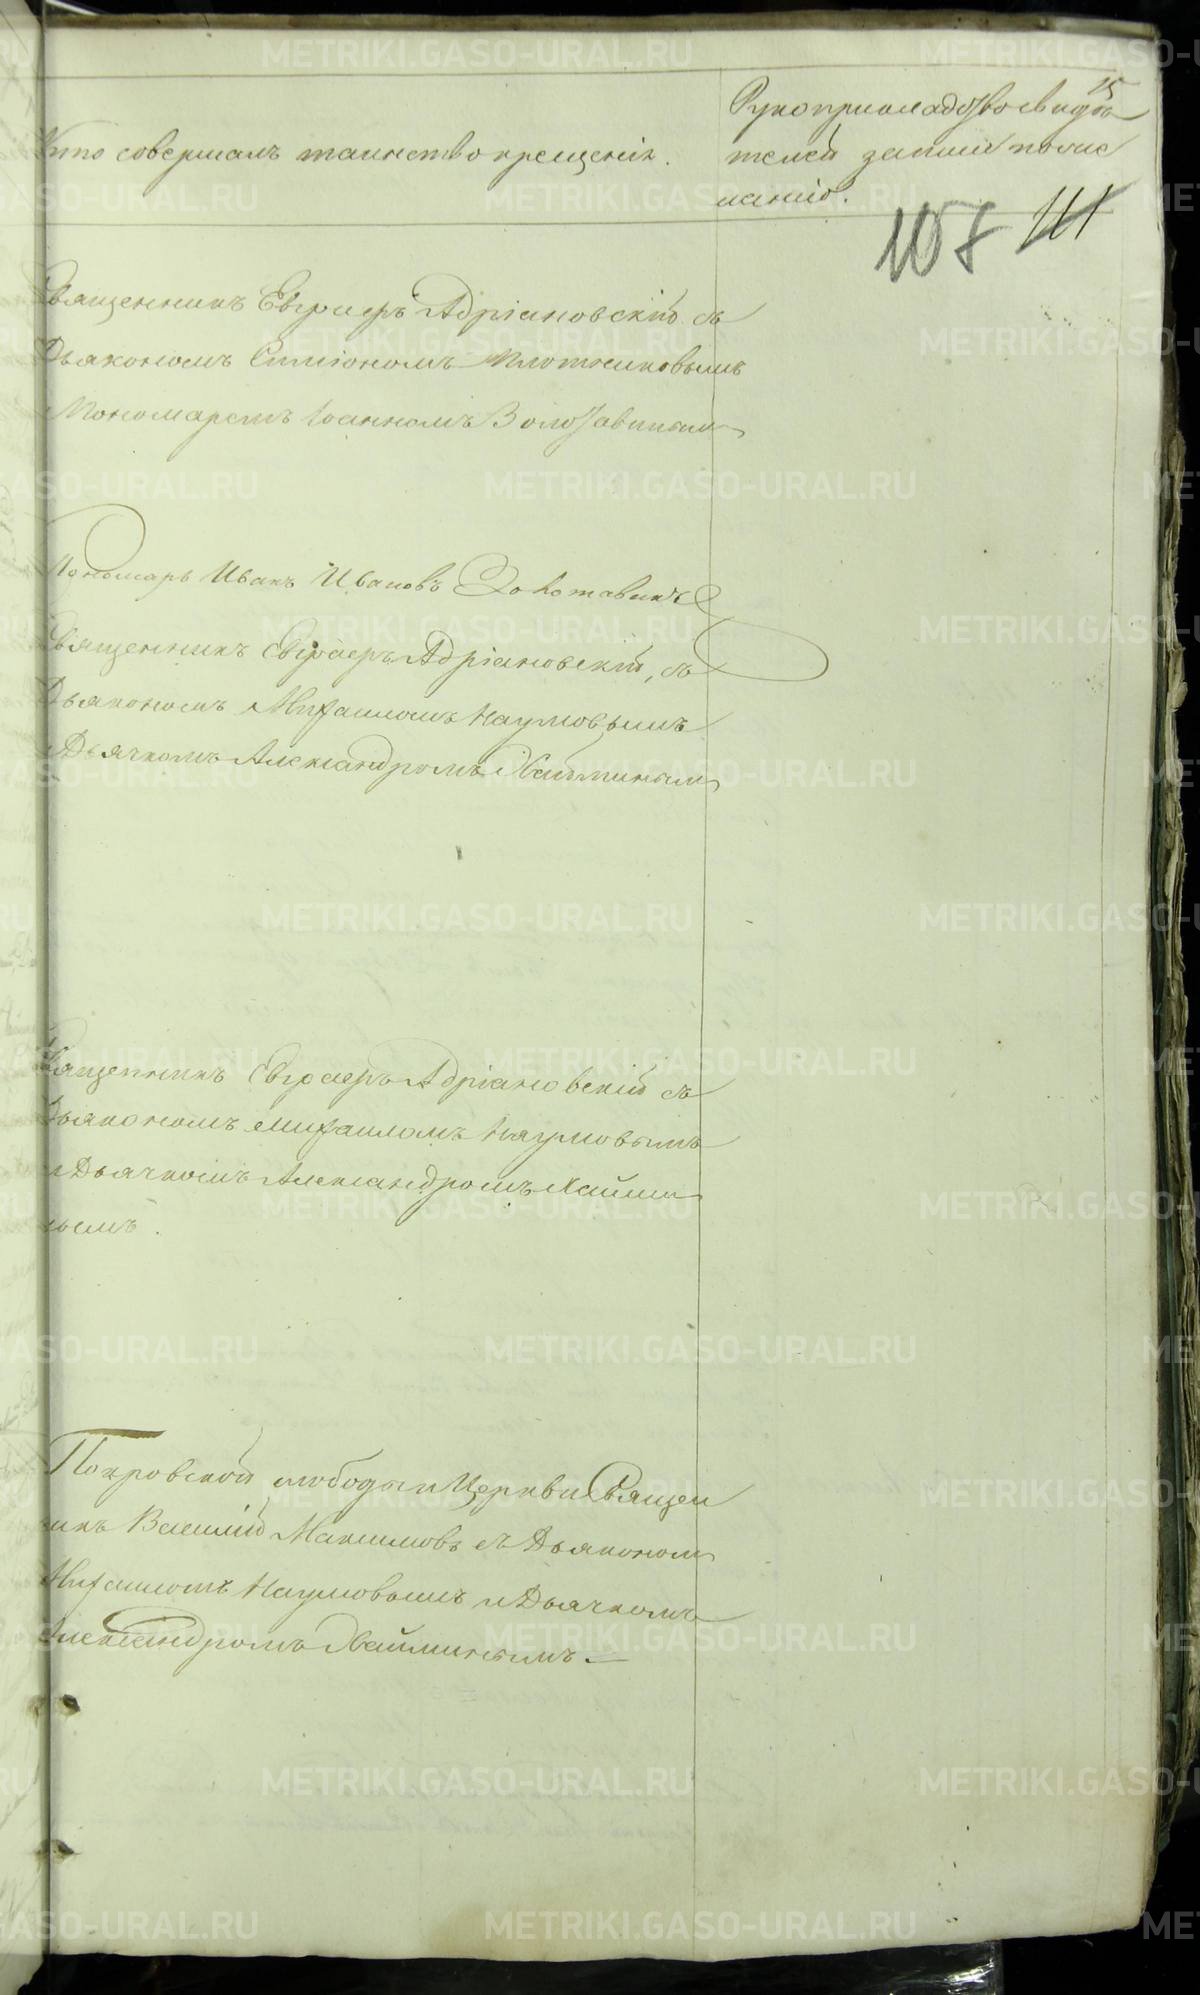 15
Кто совершалъ таинство крещенія.
Рукоприкладство свидѣ
телей записи по же
ланію.
107 111
Священникъ Евграфъ Адріановскій съ
Дьякономъ Симіономъ Плотниковымъ
Пономаремъ Іоанномъ Золотавинымъ
Пономарь Иванъ Ивановъ Золотавинъ
Священникъ Евграфъ Адріановскій, съ
Дьякономъ Михаиломъ Наумовымъ
и Дьячкомъ Александромъ Хайминымъ
Священникъ Евграфъ Адріановскій съ
Дьякономъ Михаиломъ Наумовымъ
и Дьячкомъ Александромъ Хайми
нымъ.
Покровской слободы Церкви Священ
никъ Василій Максимовъ съ Дьякономъ
Михаиломъ Наумовымъ и Дьячкомъ
Александромъ Хайминымъ.
METRIKI.GASO-URAL.RU